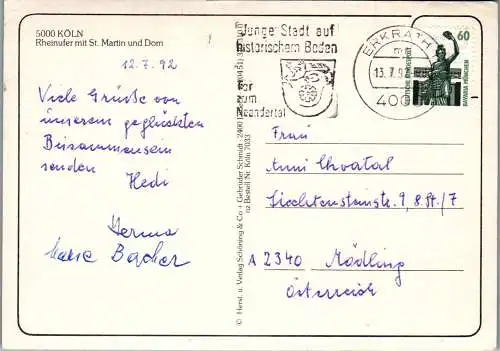 5000 KÖLN
Rheinufer mit St. Martin und Dom
12.7.92
Viele Grüsse von
unserem geglückten
Beisammensein
senden
Hedi
Herma
Bacher
© Herst. u. Verlag Schöning & Co + Gebrüder Schmidt, 2400
nz Bestell Nr. Köln 7033
Junge Stadt auf
historischem Boden
Tor
zum
Neandertal
ERKRATH
13.7.92
400
60
DEUTSCHE BUNDESPOST
BAVARIA MÜNCHEN
Frau
Anni Chvatal
Liechtensteinstr. 9, 8.St/7
A 2340 Mödling
Österreich